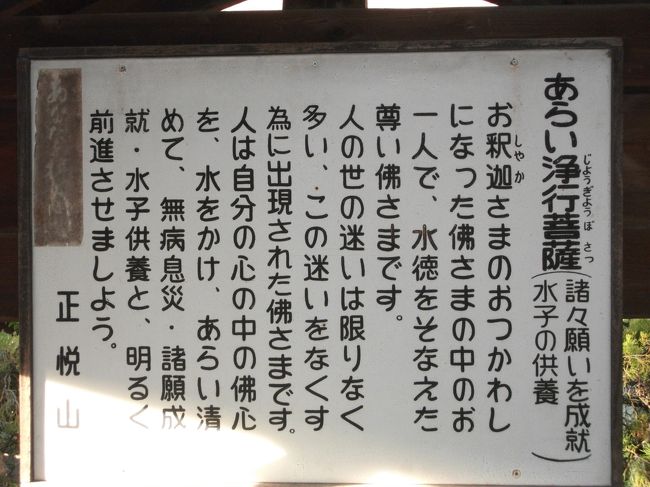 あらい浄行菩薩(諸々願いを成就
水子の供養)
じようぎようぼさつ
お釈迦さまのおつかわし
しやか
になった佛さまの中のお
一人で、水徳をそなえた
尊い佛さまです。
人の世の迷いは限りなく
多い、この迷いをなくす
為に出現された佛さまです。
人は自分の心の中の佛心
を、水をかけ、あらい清
めて、無病息災・諸願成
就・水子供養と、明るく
前進させましよう。
正悦山